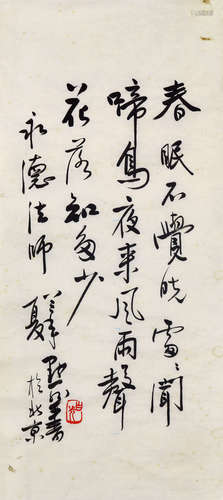 春眠不覺曉處〻聞
啼鳥夜來風雨聲
花落知多少
永德法師
夏
書
於北京